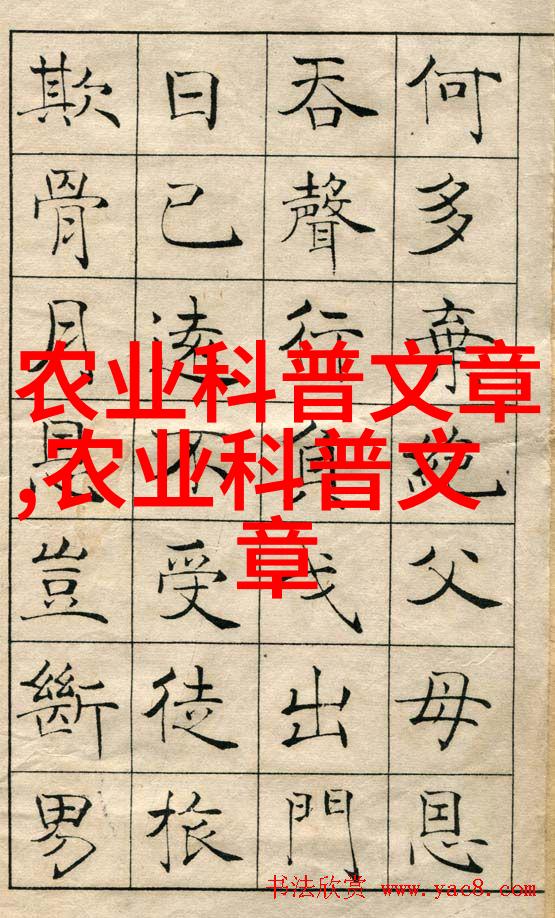 何多棄絶父母恩
吞聲行負戈出門
日已遠不受徒旅
欺骨月恩豈斷男
农业科普文章
,农业科普文
章
书法欣赏 www.yac8.com